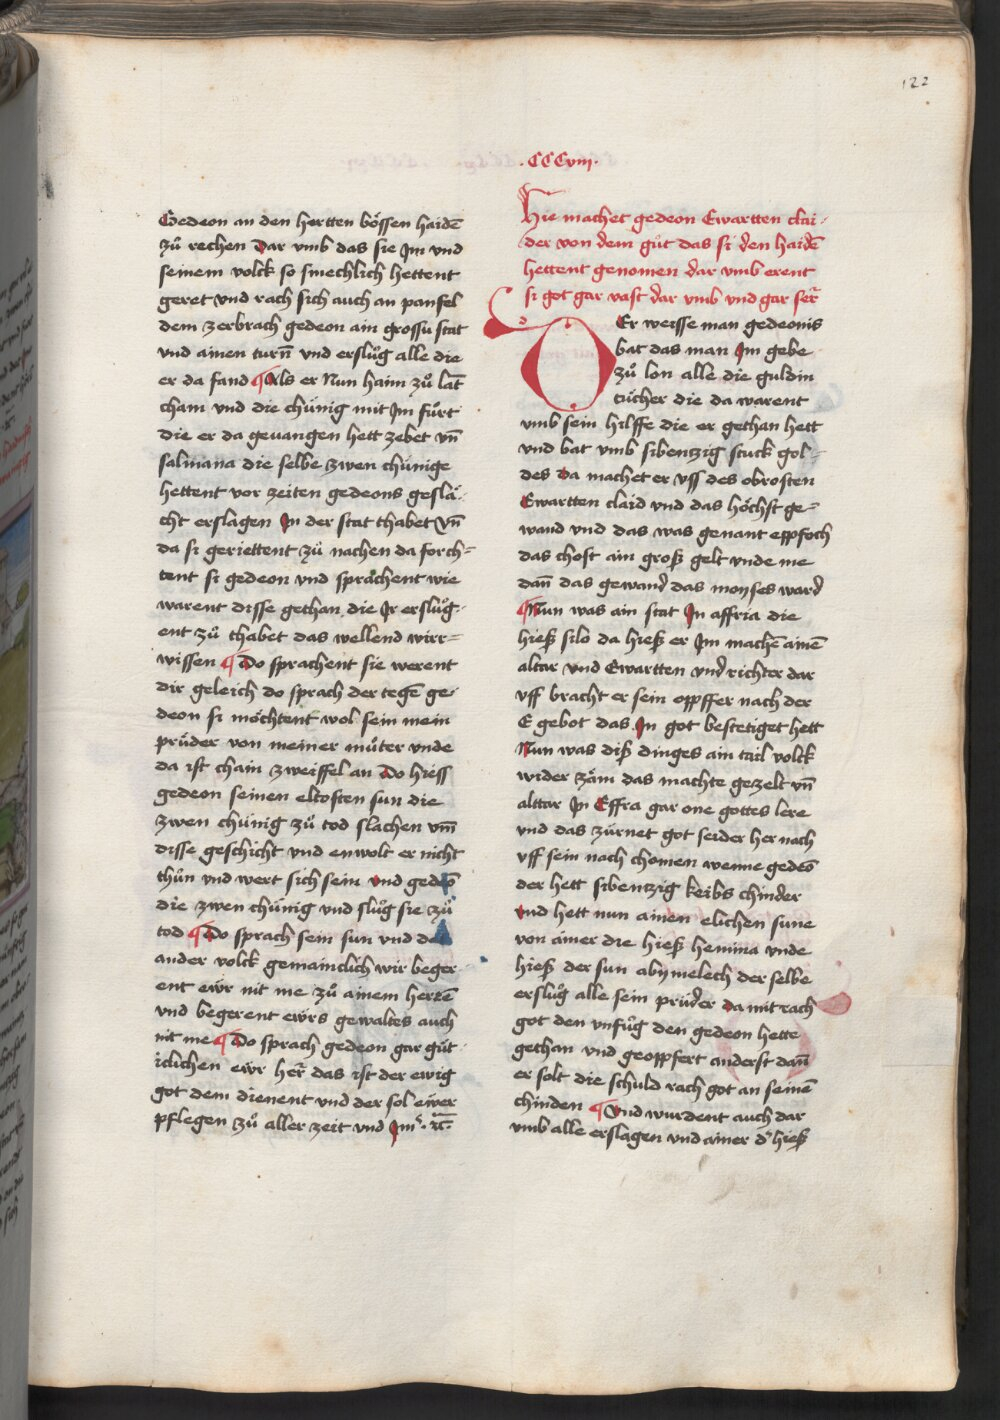 122
.CCCviij.
Gedeon an den hertten bössen haidē
zů rechen Dar vmb das sie Jm vnd
seinem volck so smechlich hettent
geret vnd rach sich auch an panfel
dem zerbrach gedeon ain grossu stat
vnd ainen turn̄ vnd erslůg alle die
er da fand ¶ Als er Nun haim zů lāt
cham vnd die chünig mit Jm fůrt
die er da geuangen hett zebet vn̄
salmana die selbe zwen chünige
hettent vor zeiten gedeons geslä-
cht erslagen Jn der stat thabet vn̄
da si geriettent zů nachen da forch-
tent si gedeon vnd sprachent wie
warent disse gethan die Jr erslůg-
ent zů thabet das wellend wirr-
wissen ¶ Do sprachent sie werent
dir geleich do sprach der tegē ge-
deon si möchtent wol sein mein
prüder von meiner můter vnde
da ist chain zweiffel an Do hiess
gedeon seinen eltosten sun die
zwen chünig zů tod slachen vm̄
disse geschicht vnd enwolt er nicht
thůn vnd wert sich sein vnd gedeō
die zwen chünig vnd slůg sie zů
tod ¶ Do sprach sein sun vnd das
ander volck gemainclich wir beger-
ent ewr nit me zů ainem herrē
vnd begerent ewrs gewaltes auch
nit me ¶ Do sprach gedeon gar güt-
iclichen ewr her̄ das ist der ewig
got dem dienent vnd der sol ewer
pflegen zů aller zeit vnd Jm̄ . ꝛc̄.
Hie machet gedeon Ewartten clai-
der von dem gůt das si den haidē
hettent genomen dar vmb erent
si got gar vast dar vmb vnd gar ser̄
DEr weisse man gedeonis
bat das man Jm gebe
zů lon alle die guldin
tücher die da warent
vmb sein hilffe die er gethan hett
vnd bat vmb sibenzig stuck gol-
des Da machet er vss des obrosten
Ewartten claid vnd das höchst ge-
wand vnd das was genant eppfoch
das chost ain groß gelt vnde me
dan̄ das gewand das moyses ward
¶ Nun was ain stat Jn affria die
hieß silo da hieß er Jm machē ainē
altar vnd Ewartten vnd richter dar
vff bracht er sein oppffer nach der
E gebot das Jn got bestetiget hett
Nun was diß dinges ain tail volck
wider zäm das machte gezelt vn̄
alttar Jn Effra gar one gottes lere
vnd das zürnet got seider her nach
vff sein nach chomen wenne gedeō
der hett sibentzig keibs chinder
vnd hett nun ainen elichen sune
von ainer die hieß hemina vnde
hieß der sun abymelech der selbe
erslůg alle sein prüder da mit rach
got den vnfůg den gedeon hette
gethan vnd geoppfert anderst dan̄
er solt die schuld rach got an seinē
chinden ¶ Vnd wurdent auch dar
vmb alle erslagen vnd ainer d' hieß